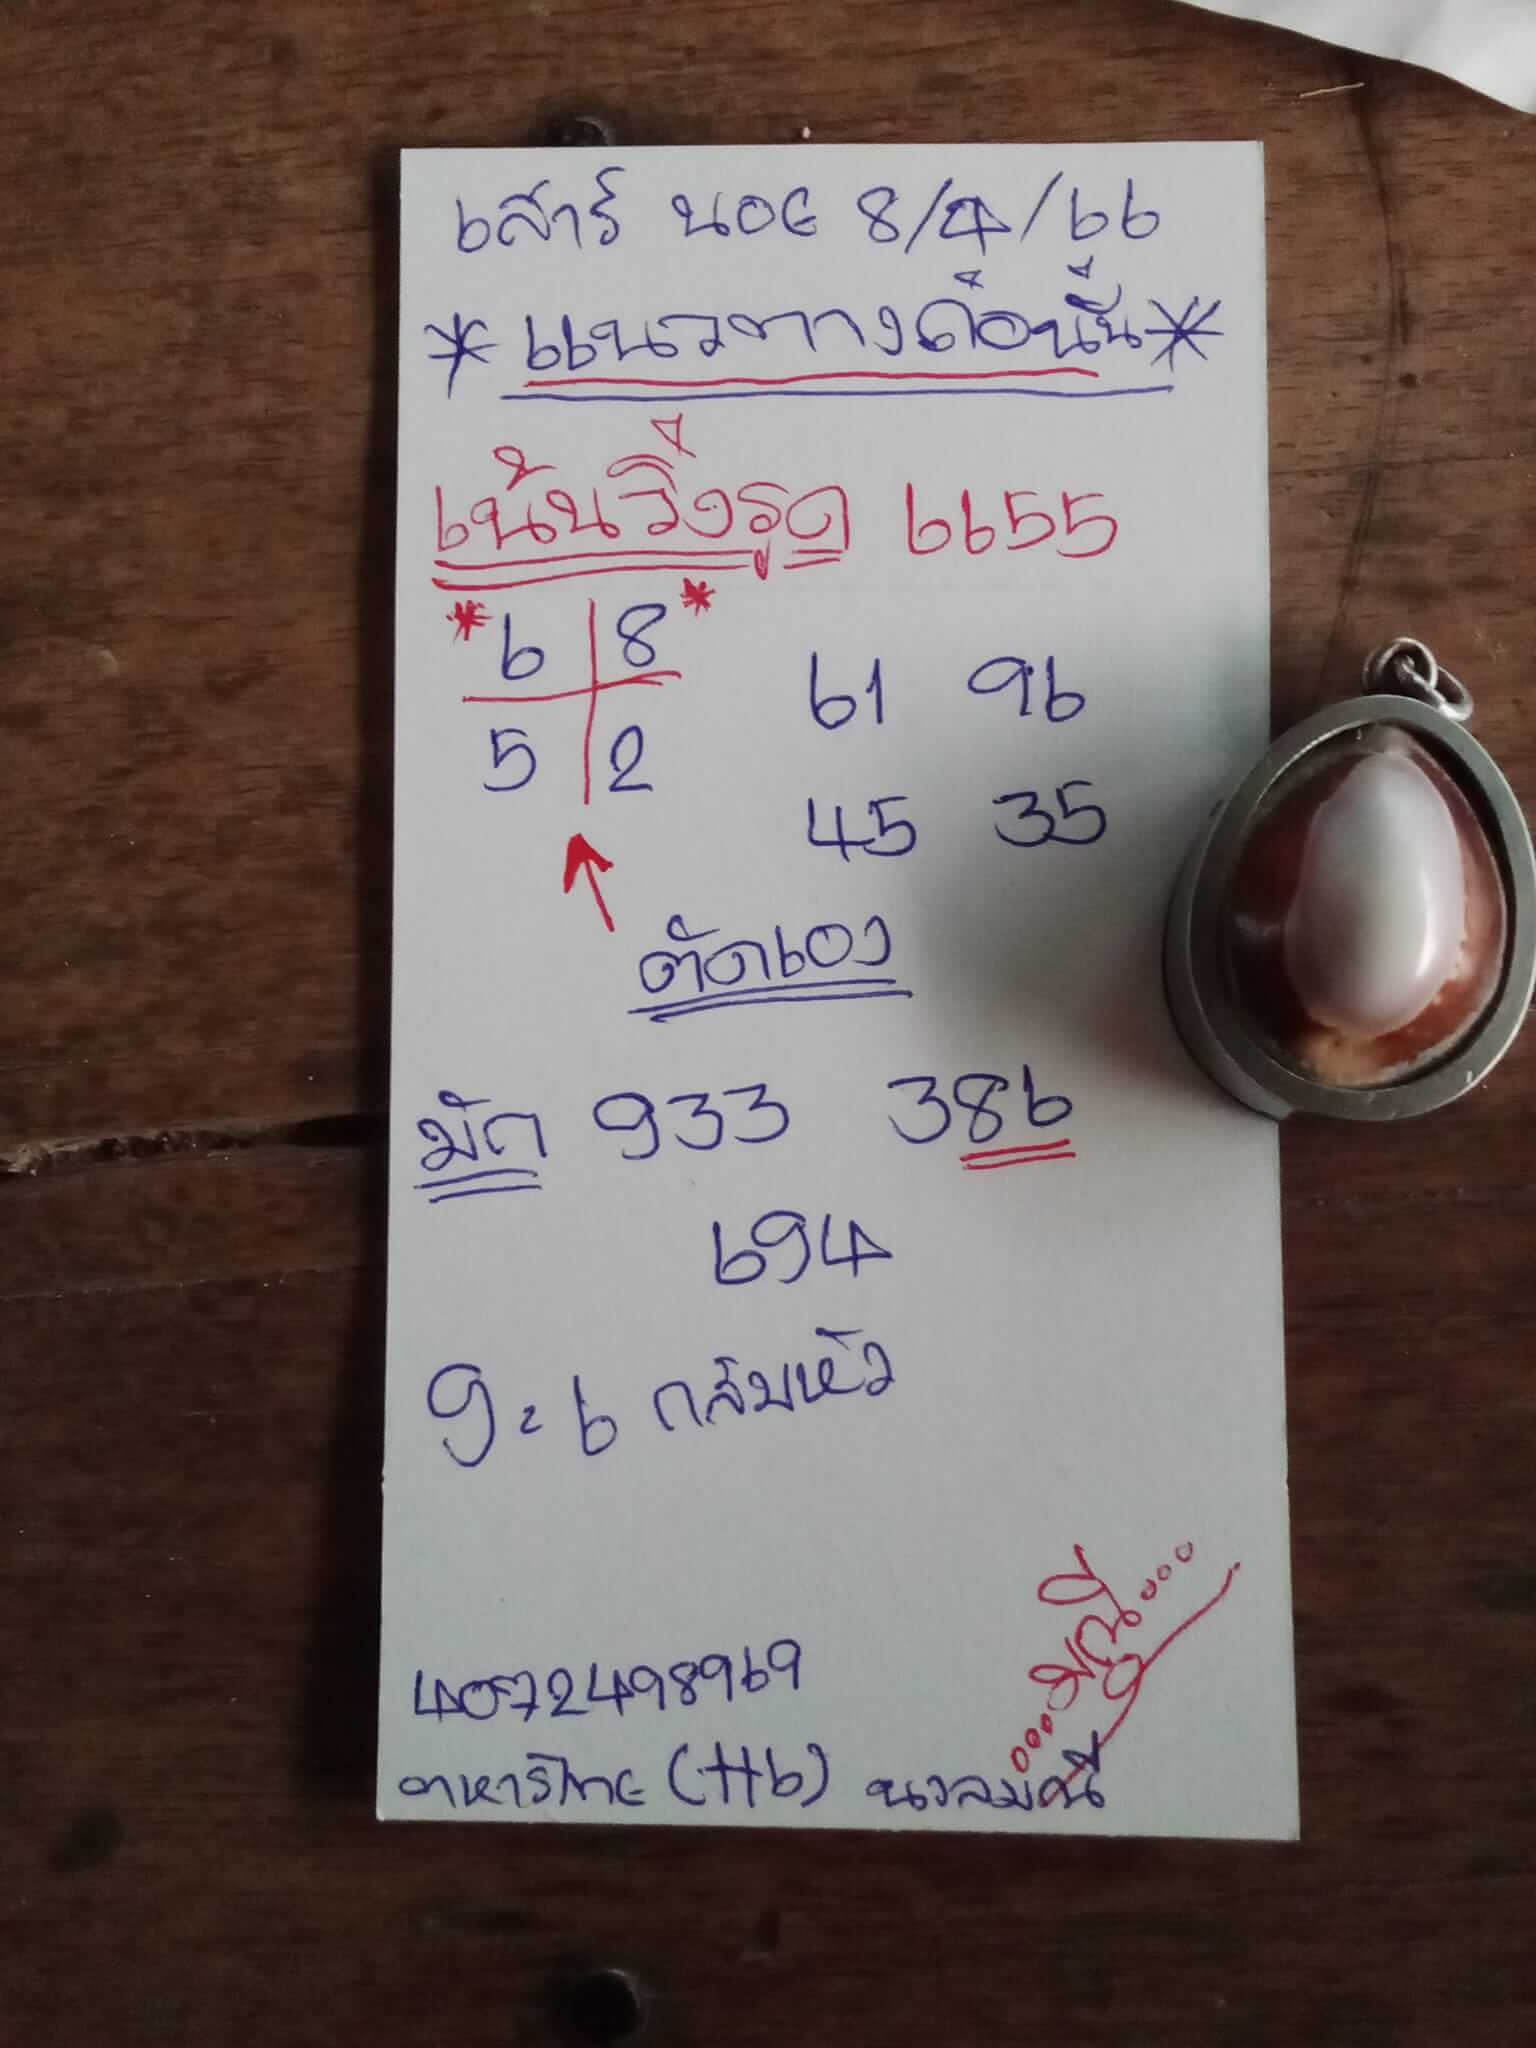 เสาร์ นอย 8/4/66
*แนวทางดื้อนั้น*
เน้นวิ่งรูด 6655
*6 8*
61 96
5 2
45 35
ตัดเอง
มัด 933 386
694
9=6 กลับหัว
มณี
4072498969
ทหารไทย (ttb) นวลมณี